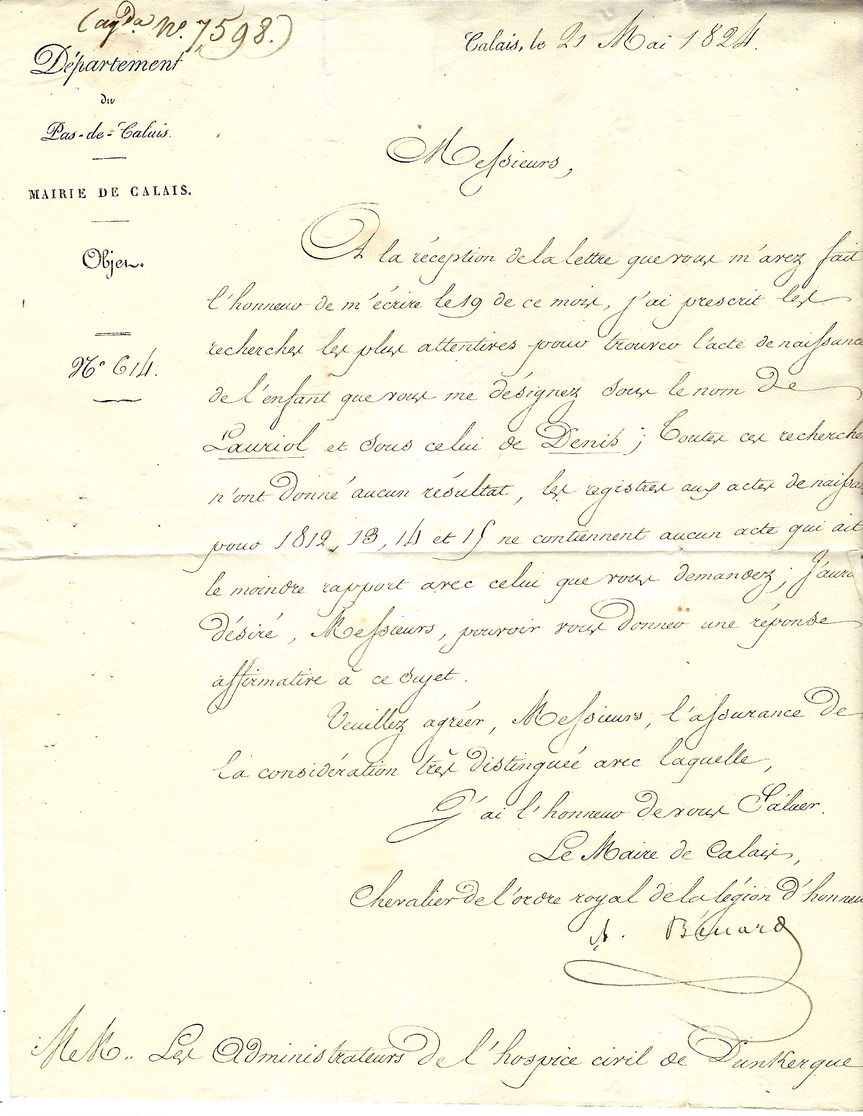 (agda No. 7,598.)
Département
du
Pas-de-Calais.
MAIRIE DE CALAIS.
Objet.
No 614.
Calais, le 21 Mai 1824.
Messieurs,
A la réception de la lettre que vous m'avez fait
l'honneur de m'écrire le 19 de ce mois, j'ai prescrit les
recherches les plus attentives pour trouver l'acte de naissance
de l'enfant que vous me désignez sous le nom de
Lauriol et sous celui de Denis ; Toutes ces recherche
n'ont donné aucun résultat, les registres aux actes de naissa
pour 1812, 13, 14 et 15 ne contiennent aucun acte qui ait
le moindre rapport avec celui que vous demandez ; J'aura
désiré, Messieurs, pouvoir vous donner une réponse
affirmative à ce sujet.
Veuillez agréer, Messieurs, l'assurance de
la considération très distinguée avec laquelle,
J'ai l'honneur de vous Saluer.
Le Maire de Calais,
Chevalier de l'ordre royal de la légion d'honneu
A. Bénard
MM. Les Administrateurs de l'hospice civil de Dunkerque